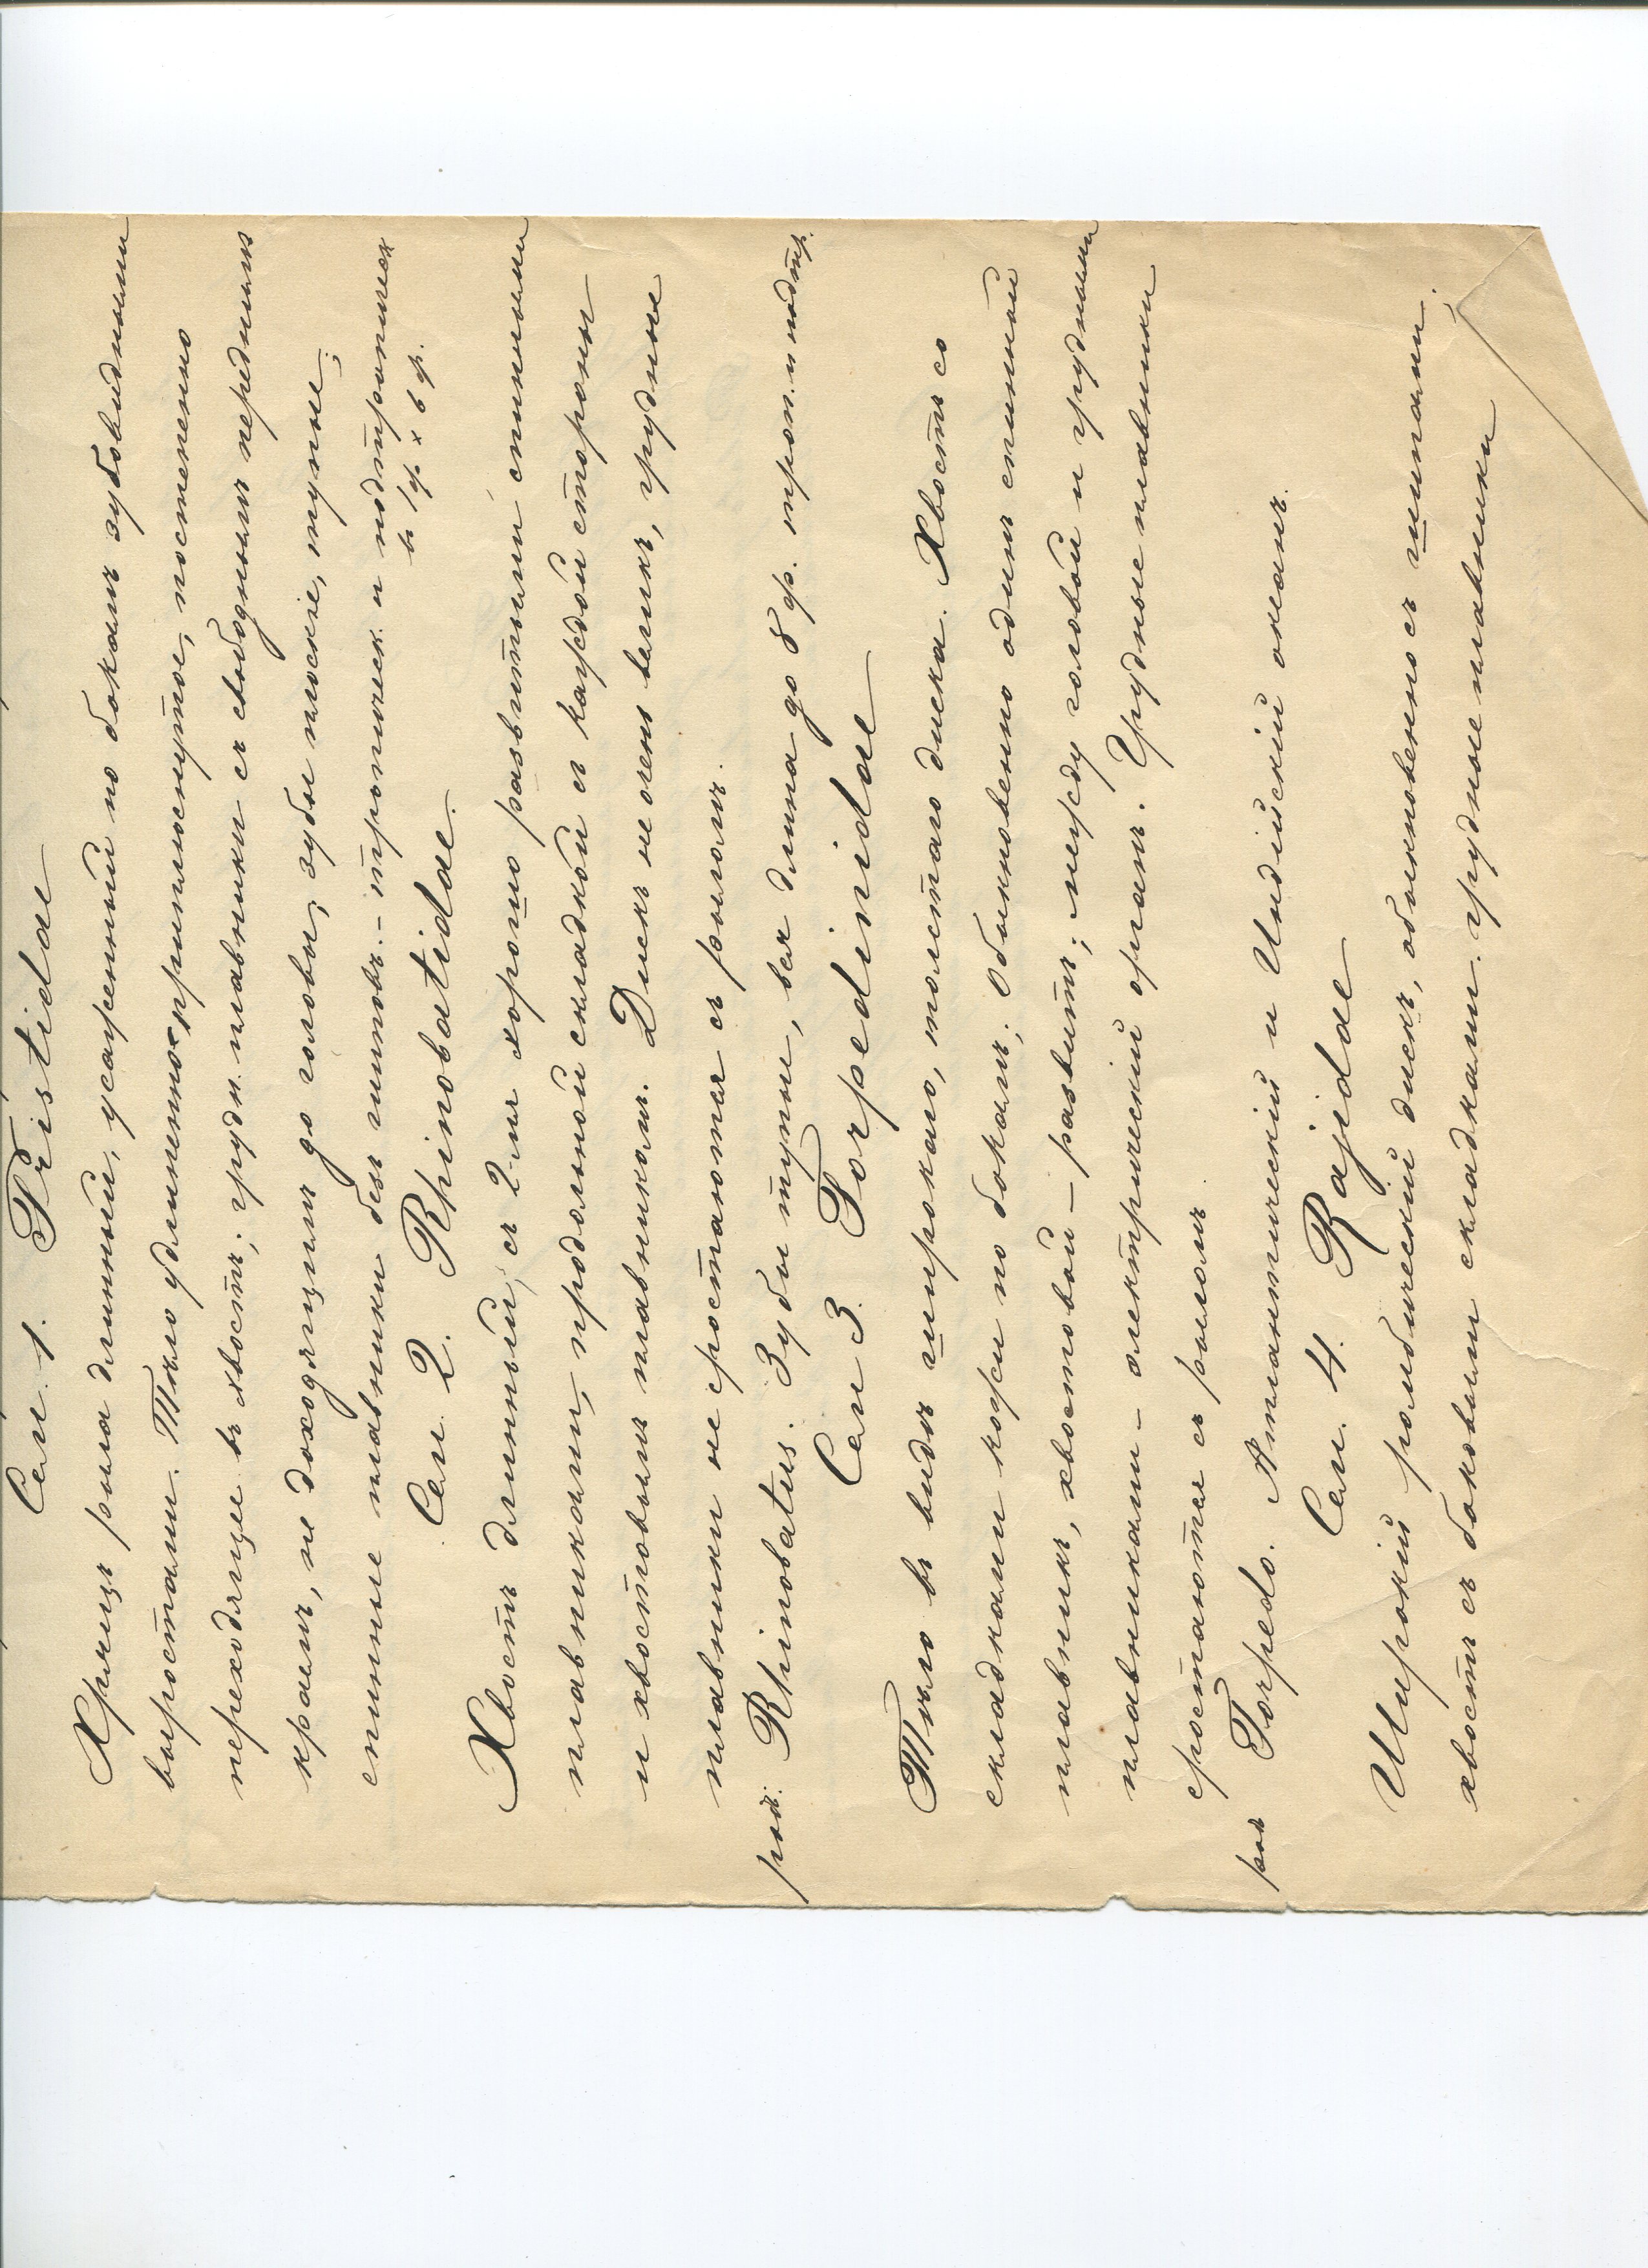 Сем. 1. Pristidae
Хрящъ рыла длинный, усаженный по бокамъ зубовидными
выростами. Тѣло удлиненно-приплюснутое, постепенно
переходящее въ хвостъ; грудн. плавники съ свободнымъ переднимъ
краемъ, не доходящимъ до головы; зубы плоскіе, тупые;
спинные плавники безъ шиповъ. – тропическ. и подтропическ
въ 1 ф × 6 ф.
Сем. 2. Rhinobatidae.
Хвостъ длинный, съ 2-мя хорошо развитыми спинными
плавниками, продольной складкой съ каждой стороны
и хвостовымъ плавникомъ. Дискъ не очень великъ, грудные
плавники не сростаются съ рыломъ.
род. Rhinobatus. Зубы тупые, вся длина до 8 фр. троп. и подтр.
Сем 3. Torpedinidae
Тѣло въ видѣ широкаго, толстаго диска. Хвостъ со
складками кожи по бокамъ; обыкновенно одинъ спинной
плавникъ, хвостовой – развитъ; между головой и грудными
плавниками – электрическій органъ. Грудные плавники
сростаются съ рыломъ.
родъ Torpedo. Атлантическій и Индійскій океанъ.
Сем. 4. Rajidae
Широкій ромбическій дискъ, обыкновенно съ шипами;
хвостъ съ боковыми складками. грудные плавники